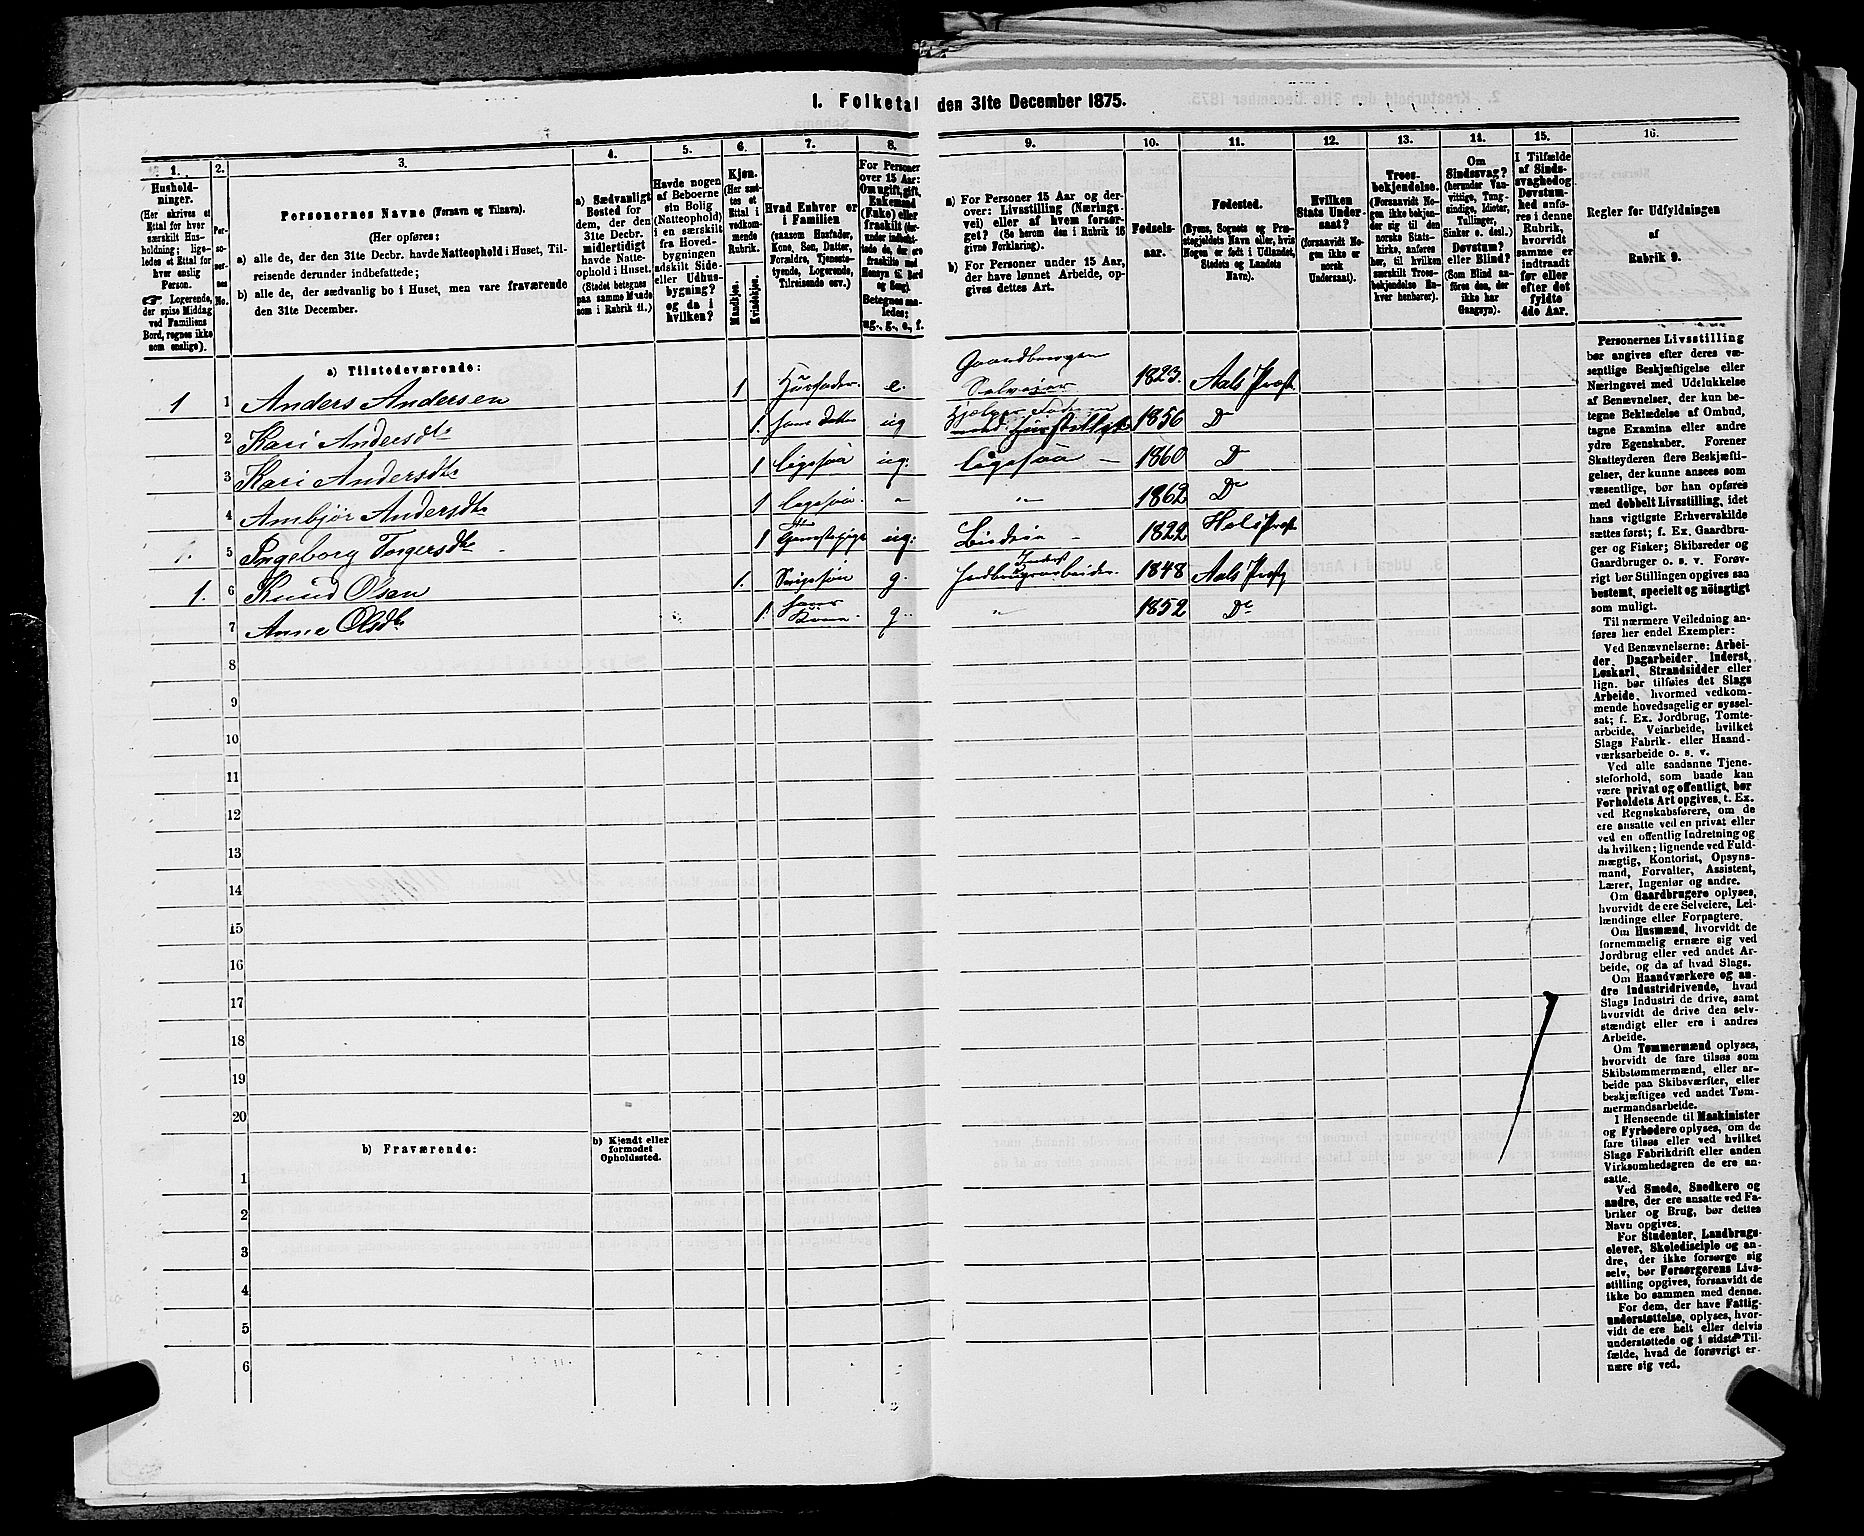 1. Folketal den 31te December 1875.
1. 2. 3. 4. 5. 6. 7. 8. 9. 10. 11. 12. 13. 14. 15. 16.
Hushold-
ninger.
(Her skrives et
Ettal for hver
særskilt Hus-
holdning; lige-
ledes et Ettal for
hver enslig
Person.
☞ Logerende,
der spise Middag
ved Familiens
Bord, regnes ikke
som enslige).
Per-
so-
ner-
nes
No.
Personernes Navne (Fornavn og Tilnavn).
(Her opføres:
a) alle de, der den 31te Decbr. havde Natteophold i Huset, Til-
reisende derunder indbefattede;
b) alle de, der sædvanlig bo i Huset, men vare fraværende
den 31te December.
a) Sædvanligt
Bosted for
dem, der den
31te Decbr.
midlertidigt
havde Natte-
ophold i Huset.
(Stedet betegnes
paa samme Maade
som i Rubrik 11.)
Havde nogen
af Beboerne
sin Bolig
(Natteophold)
i en særskilt
fra Hoved-
bygningen
adskilt Side-
eller Udhus-
bygning?
og da i
hvilken?
Kjøn.
(Her sæt-
tes et
Ettal i
vedkom-
mende
Rubrik.
Mandkjøn.
Kvindekjøn.
Hvad Enhver er
i Familien
(saasom Husfader,
Kone, Søn, Datter,
Forældre, Tjeneste-
tyende, Logerende,
Tilreisende osv.)
For Personer
over 15 Aar:
Om ugift, gift,
Enkemand
(Enke) eller
fraskilt
Betegnes saa-
ledes:
ug., g., e., f.
a) For Personer 15 Aar og der-
over: Livsstilling (Nærings-
vei) eller af hvem forsør-
get? (Se herom den i Rubrik 16
givne Forklaring).
b) For Personer under 15 Aar,
der have lønnet Arbeide, op-
gives dettes Art.
Fødsels-
aar.
Fødested.
(Byens, Sognets og Præ-
stegjeldets Navn eller, hvis
Nogen er født i Udlandet,
Stedets og Landets
Navn).
Hvilken
Stats Under-
saat?
(forsaavidt No-
gen ikke er
norsk
Undersaat).
Troes-
bekjendelse.
(Forsaavidt No-
gen ikke bekjen-
der sig til den
norske Stats-
kirke, anføres
her, til hvilken
særskilt Troes-
bekjendelse En-
hver henhører).
Om
Sindssvag?
(herunder Van-
vittige, Tung-
sindige, Idioter,
Tullinger,
Sinker o. desl.)
Døvstum?
eller Blind?
(Som Blind an-
føres den, der
ikke har
Gangsyn).
I Tilfælde
af Sinds-
svaghed og
Døvstum-
hed anfø-
res i denne
Rubrik,
hvorvidt
samme er
indtraadt
før eller
efter det
fyldte
4de Aar.
Regler for Udfyldningen
af
Rubrik 9.
a) Tilstedeværende:
1 1 Anders Andersen 1 Husfader e. Gaardbruger Selveier 1823. Aals Præst.
2 Kari Andersdtr 1. hans datter ug Hjelper Faderen med 1856 Do
3 Kari Andersdtr 1 Ligesaa ug. Ligesaa — 1860 Do
4 Ambjør Andersdtr 1 Ligesaa. " " 1862 Do
1. 5 Ingeborg Torgersdtr 1 ug. 1822 Hols Præst.
1. 6 Knud Olsen 1. g. Jordbrugsarbeider 1848 Aals Præstg
7 Anne Olsdtr 1. hans Kone g. " 1852 Do
8
9
10
11
12
13
14
15
16
17
18
19
20
b) Fraværende:
b) Kjendt eller
formodet
Opholdssted.
1
2
3
4
5
6
Personernes Livsstilling
bør angives efter deres væ-
sentlige Beskjæftigelse eller
Næringsvei med Udelukkelse
af Benævnelser, der kun be-
tegne Beklædelse af Ombud,
tagne Examina eller andre
ydre Egenskaber. Forener
Skatteyderen flere Beskjæfti-
gelser, der kunne ansees som
væsentlige, bør han opføres
med dobbelt Livsstilling, idet
hans vigtigste Erhvervskilde
sættes først; f. Ex. Gaardbru-
ger og Fisker; Skibsreder og
Gaardbruger o. s. v. Forøv-
rigt bør Stillingen opgives saa
bestemt, specielt og nøiagtigt
som muligt.
Til nærmere Veiledning an-
føres her endel Exempler:
Ved Benævnelserne: Arbei-
der, Dagarbeider, Inderst,
Løskarl, Strandsidder eller
lign. bør tilføies det Slags
Arbeide, hvormed vedkom-
mende hovedsagelig er syssel-
sat; f. Ex. Jordbrug, Tomte-
arbeide, Veiarbeide, hvilket
Slags Fabrik- eller Haand-
værksarbeide o. s. v.
Ved alle saadanne Tjene-
steforhold, som baade kan
være privat og offentligt, bør
Forholdets Art opgives, t. Ex.
ved Regnskabsførere, om de
ere ansatte ved en privat eller
ved en offentlig Indretning og
da hvilken; lignende ved Fuld-
mægtig, Kontorist, Opsyns-
mand, Forvalter, Assistent,
Lærer, Ingeniør og andre.
Om Gaardbrugere oplyses,
hvorvidt de ere Selveiere, Lei-
lændinge eller Forpagtere.
Om Husmænd, hvorvidt de
fornemmelig ernære sig ved
Jordbrug eller ved andet Ar-
beide, og da af hvad Slags.
Om Haandværkere og an-
dre Industridrivende, hvad
Slags Industri de drive, samt
hvorvidt de drive den selv-
stændigt eller ere i andres
Arbeide.
Om Tømmermænd oplyses,
hvorvidt de fare tilsøs som
Skibstømmermænd, eller ar-
beide paa Skibsværfter, eller
beskjæftiges ved andet Tøm-
mermandsarbeide.
I Henseende til Maskinister
og Fyrbødere oplyses, om de
fare tilsøs eller ved hvilket
Slags Fabrikdrift eller anden
Virksomhedsgren de ere an-
satte.
Ved Smede, Snedkere og
andre, der ere ansatte ved Fa-
briker og Brug, bør dettes
Navn opgives.
For Studenter, Landbrugs-
elever, Skoledisciple og an-
dre, der ikke forsørge sig
selv, bør Forsørgerens Livs-
stilling opgives, forsaavidt de
ikke bo sammen med denne.
For dem, der have Fattig-
understøttelse, oplyses, hvor-
vidt de ere helt eller delvis
understøttede og i sidste Til-
fælde, hvad de forøvrigt er-
nære sig ved.